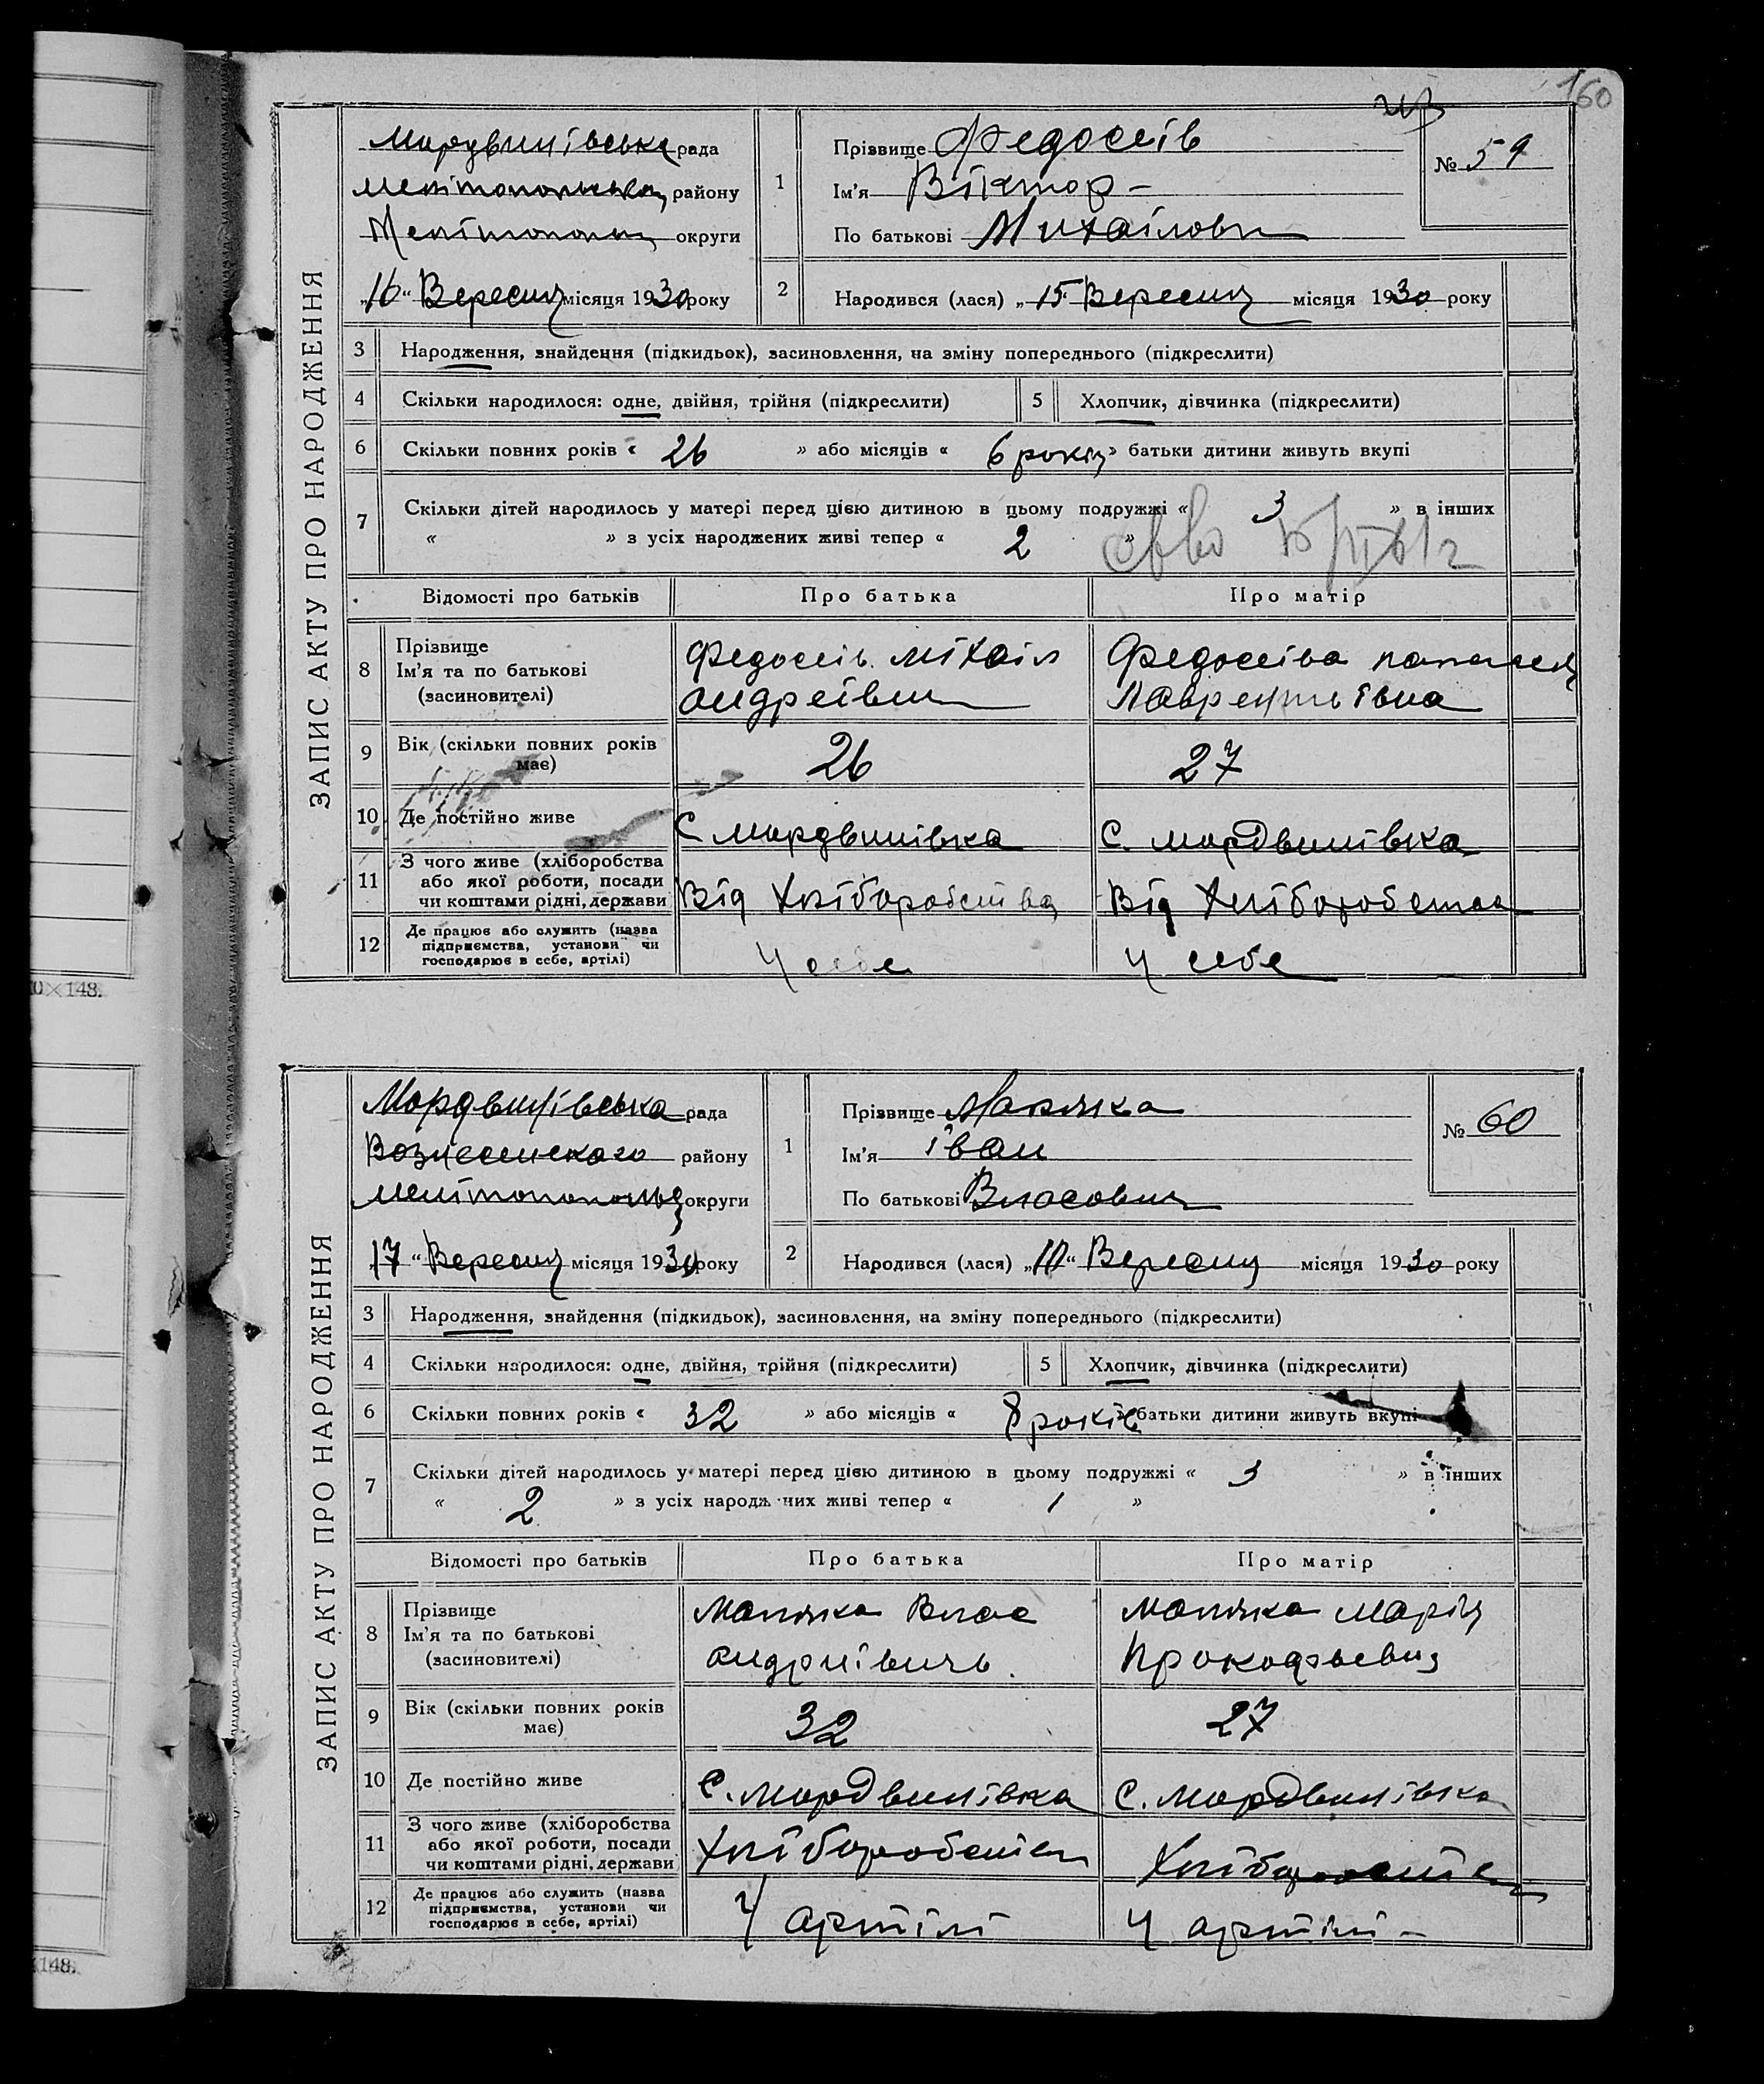 160
ЗАПИС АКТУ ПРО НАРОДЖЕННЯ
Мордвинівська рада
Мелітопольськ району
Мелітопольщ округи
„16“ Вересня місяця 1930 року
1
Прізвище Федосеів
Ім'я Віктор –
По батькові Михаілови
№ 59
2
Народився (лася) „15 Вересня місяця 1930 року
3 Народження, знайдення (підкидьок), засиновлення, на зміну попереднього (підкреслити)
4 Скільки народилося: одне, двійня, трійня (підкреслити) 5 Хлопчик, дівчинка (підкреслити)
6 Скільки повних років « 26 » або місяців « 6 років » батьки дитини живуть вкупі
7 Скільки дітей народилось у матері перед цією дитиною в цьому подружжі « 3 » в інших
« » з усіх народжених живі тепер « 2 »
Відомості про батьків Про батька Про матір
8 Прізвище
Ім'я та по батькові
(засиновителі)
Федосеів Міхаіл
андреівич
Федосеіва
Лаврентьівна
9 Вік (скільки повних років
має)
26 27
10 Де постійно живе С Мордвинівка С. Мордвинівка
11 З чого живе (хліборобства
або якої роботи, посади
чи коштами рідні, держави
Від Хліборобства Від Хліборобства
12 Де працює або служить (назва
підприємства, установи чи
господарює в себе, артілі)
У себе У себе
0×148.
ЗАПИС АКТУ ПРО НАРОДЖЕННЯ
Мордвинівська рада
Вознесенского району
Мелітопольщ округи
„17“ Вересня місяця 1930 року
1
Прізвище Маляка
Ім'я Іван
По батькові Власович
№ 60
2
Народився (лася) „10“ Вересня місяця 1930 року
3 Народження, знайдення (підкидьок), засиновлення, на зміну попереднього (підкреслити)
4 Скільки народилося: одне, двійня, трійня (підкреслити) 5 Хлопчик, дівчинка (підкреслити)
6 Скільки повних років « 32 » або місяців « 8 років батьки дитини живуть вкупі
7 Скільки дітей народилось у матері перед цією дитиною в цьому подружжі « 3 » в інших
« 2 » з усіх народж чих живі тепер « 1 »
Відомості про батьків Про батька Про матір
8 Прізвище
Ім'я та по батькові
(засиновителі)
Маляка Влас
андріівичь.
Маляка Марія
Прокофьевна
9 Вік (скільки повних років
має)
32 27
10 Де постійно живе С. Мордвинівка С. Мордвинівка
11 З чого живе (хліборобства
або якої роботи, посади
чи коштами рідні, держави
12 Де працює або служить (назва
підприємства, установи чи
господарює в себе, артілі)
У артілі У артілі –
148.